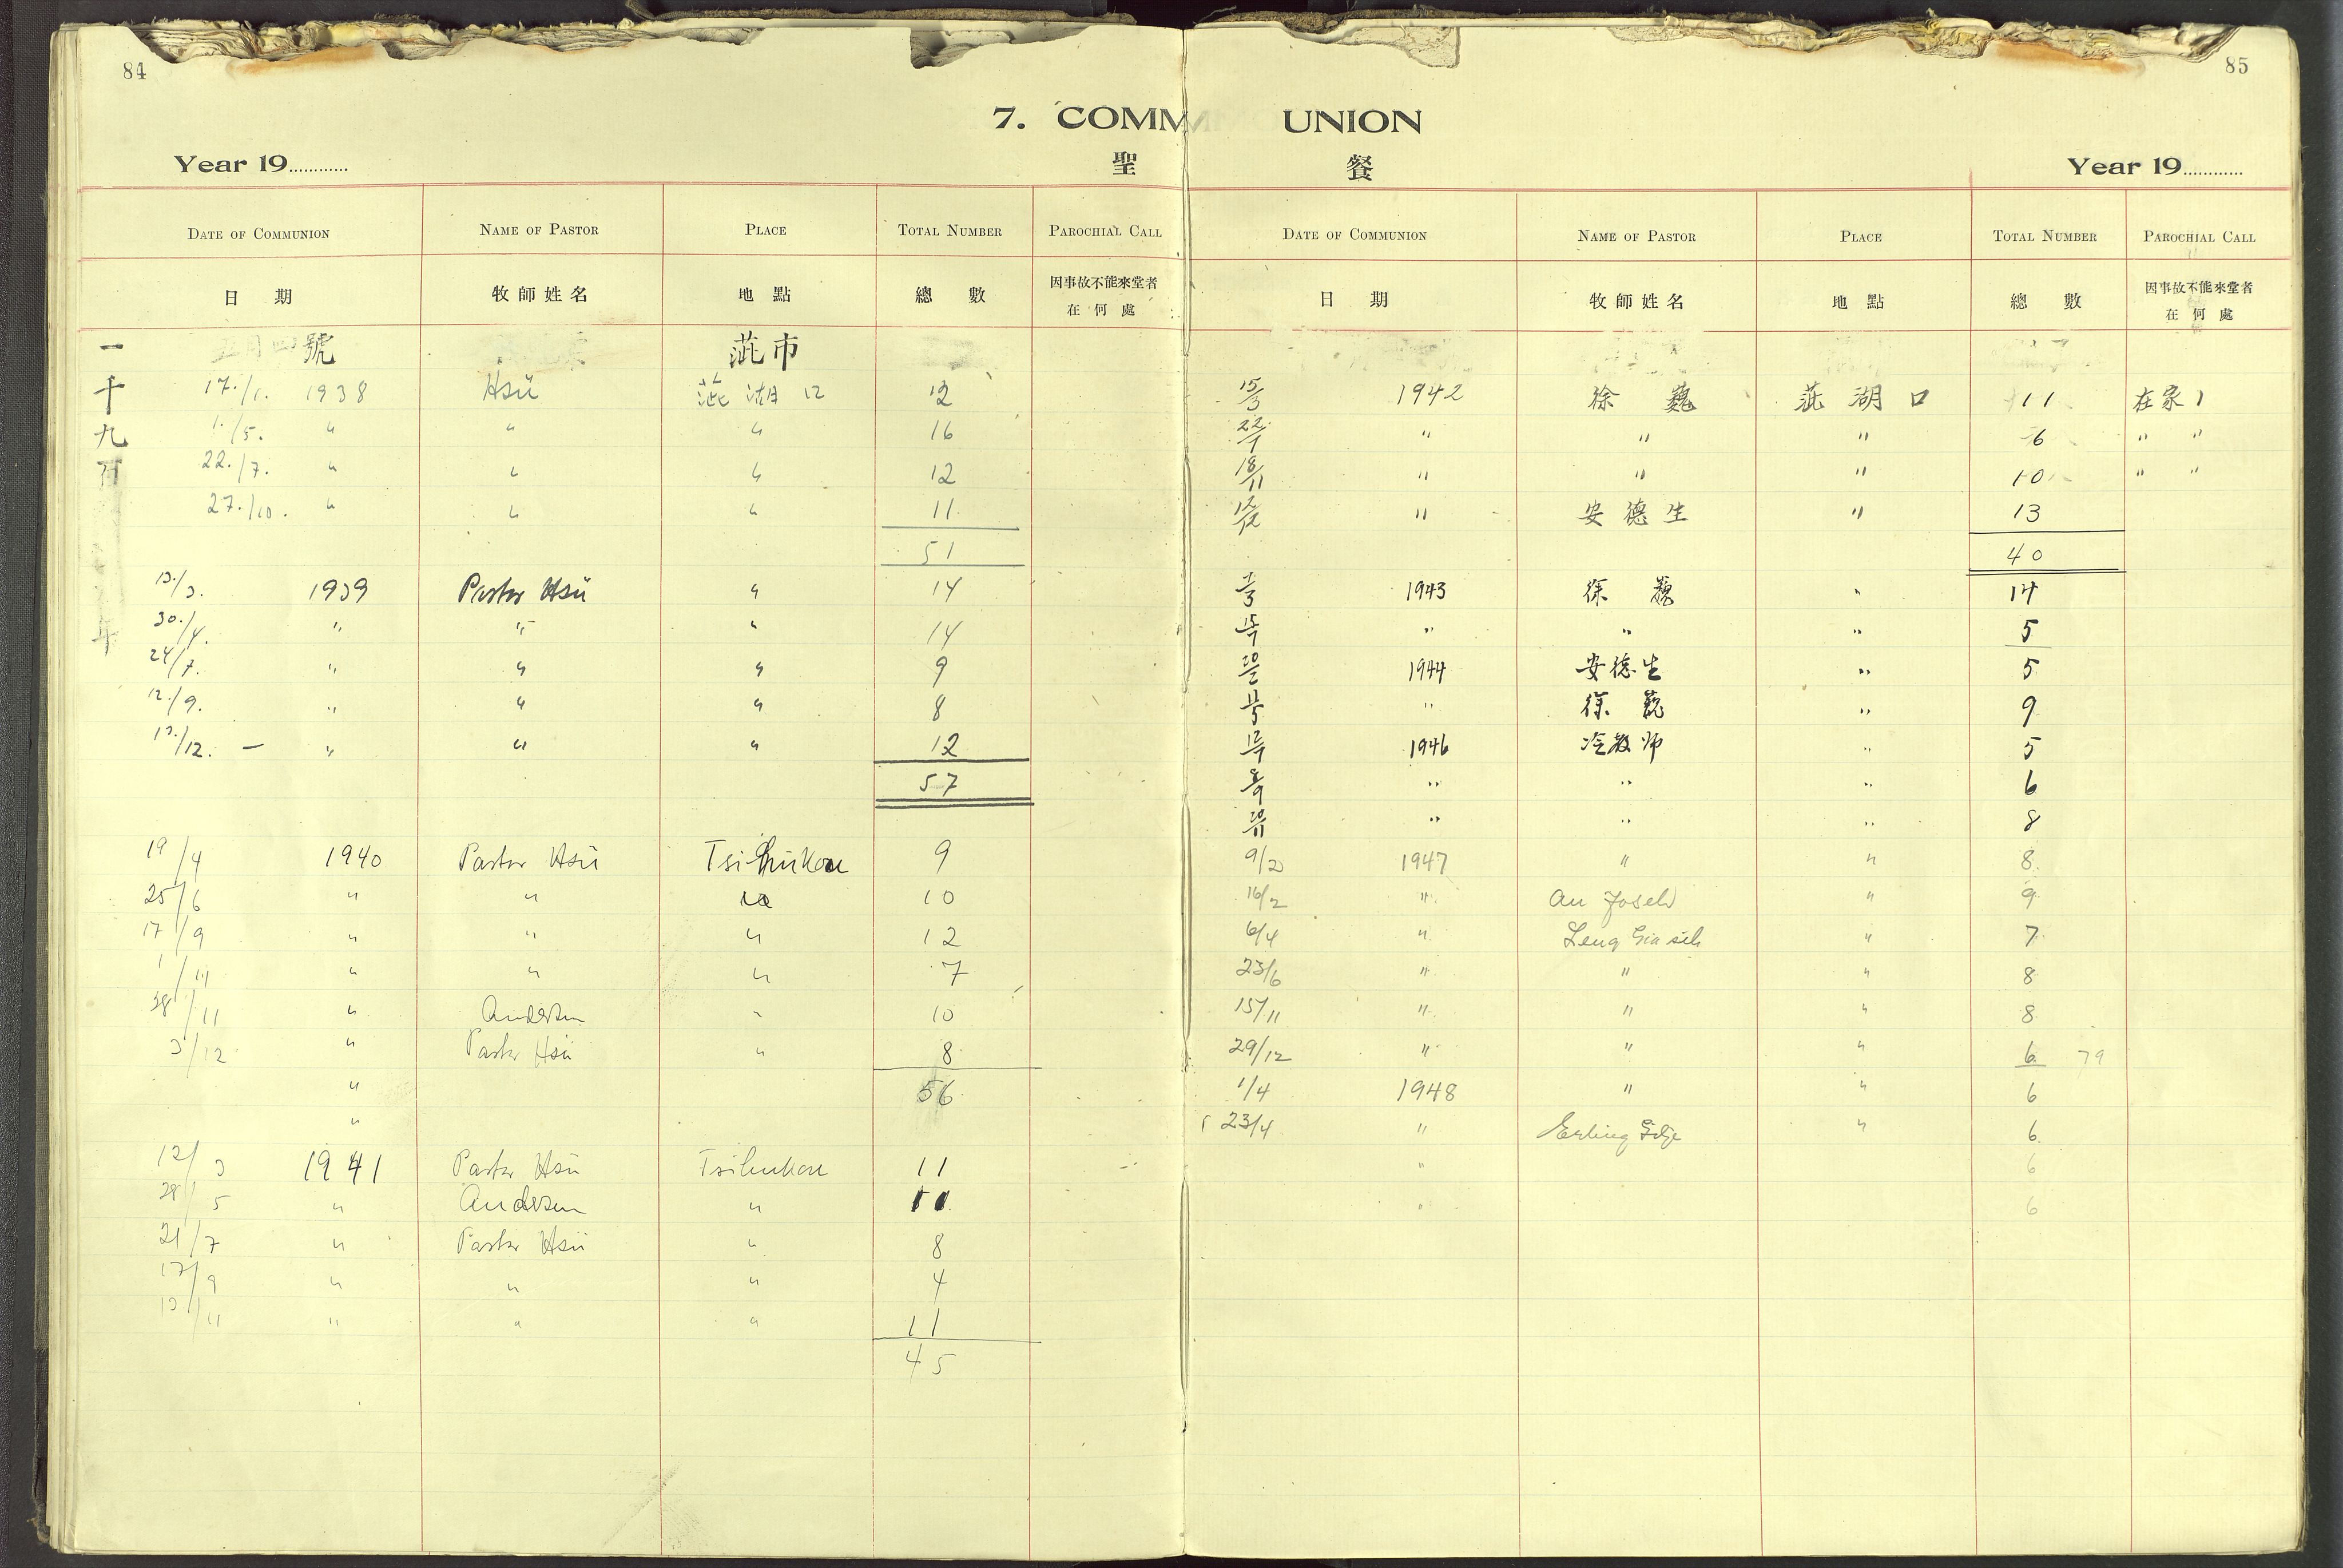 84
7. COMM
Year 19............
聖
DATE OF COMMUNION NAME OF PASTOR PLACE TOTAL NUMBER PAROCHIAL CALL
日 期 牧師姓名 地點 總數 因事故不能來堂者
在何處
一 五月四號 茈市
千 17./1. 1938 Hsü 茈湖口 12
九 1./5. " " " 16
百 22./7. " " " 12
27./10. " " " 11
51
13./3. 1939 Pastor Hsü " 14
年 30./4. " " " 14
24/7. " " " 9
12./9. " " " 8
13./12. — " " " 12
57
19/4 1940 Pastor Hsü Tsihukou 9
25/6 " " " 10
17/9 " " " 12
1/11 " " " 7
28/11 " Andersen " 10
3/12 " Pastor Hsü " 8
" 56
"
12/3 1941 Pastor Hsü Tsihukou 11
28/5 " Andersen " 11
21/7 " Pastor Hsü " 8
17/9 " " " 4
13/11 " " " 11
45
85
UNION
Year 19............
餐
DATE OF COMMUNION NAME OF PASTOR PLACE TOTAL NUMBER PAROCHIAL CALL
日 期 牧師姓名 地點 總數 因事故不能來堂者
在何處
15/3 1942 徐巍 茈湖口 11 在家1
22/7 " " " 6 " "
18/11 " " " 10 " "
12/12 " 安德生 " 13
40
1943 徐巍 " 14
" " " 5
1944 安德生 " 5
" 徐巍 " 9
1946 冷教师 " 5
8/9 " " " 6
20/11 " " " 8
9/2 1947 " " 8
16/2 " An " 9
6/4 " Leng " 7
23/6 " " " 8
15/11 " " " 8
29/12 " " " 6 79
1/4 1948 " " 6
23/4 " Erling " 6
" 6
" 6